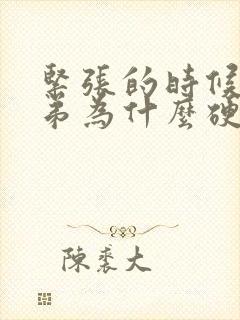 緊張的時候
弟為什麼硬
陳裘大